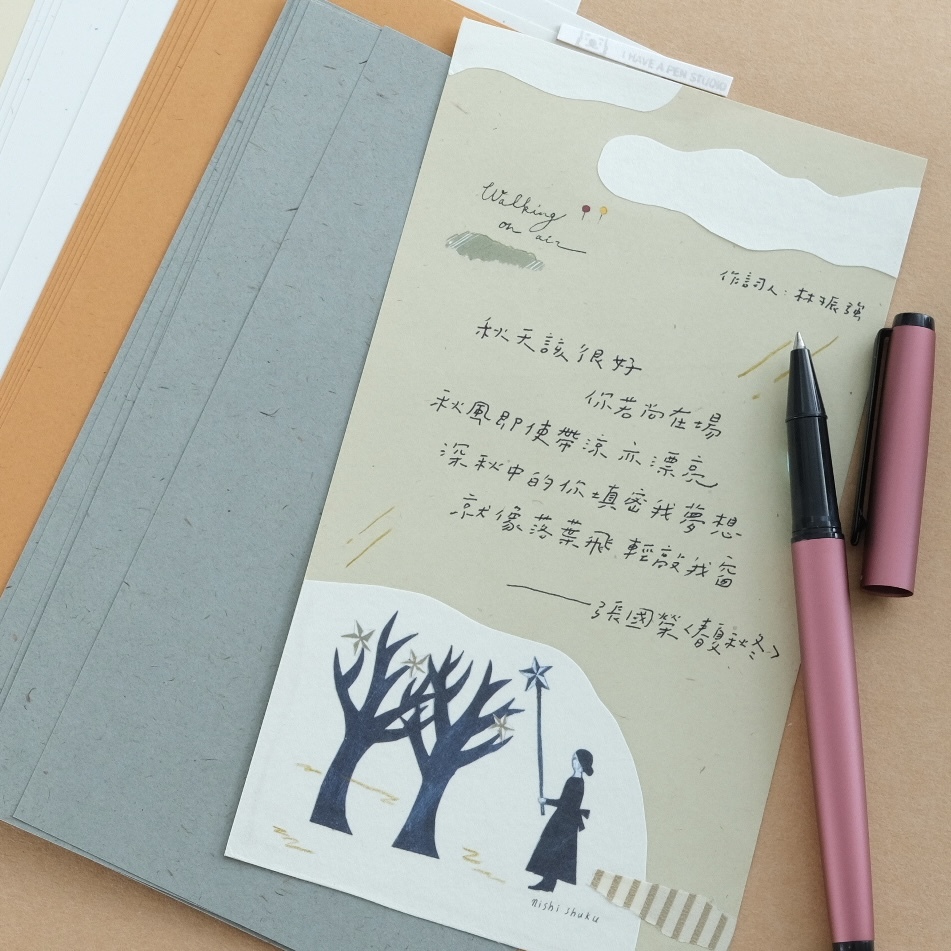 I HAVE A PEN STUDIO
Walking
on air
作詞人：林振強
秋天該很好
你若尚在場
秋風即使帶涼 亦漂亮
深秋中的你填密我夢想
就像落葉飛 輕敲我窗
——張國榮〈春夏秋冬〉
nishi shuku